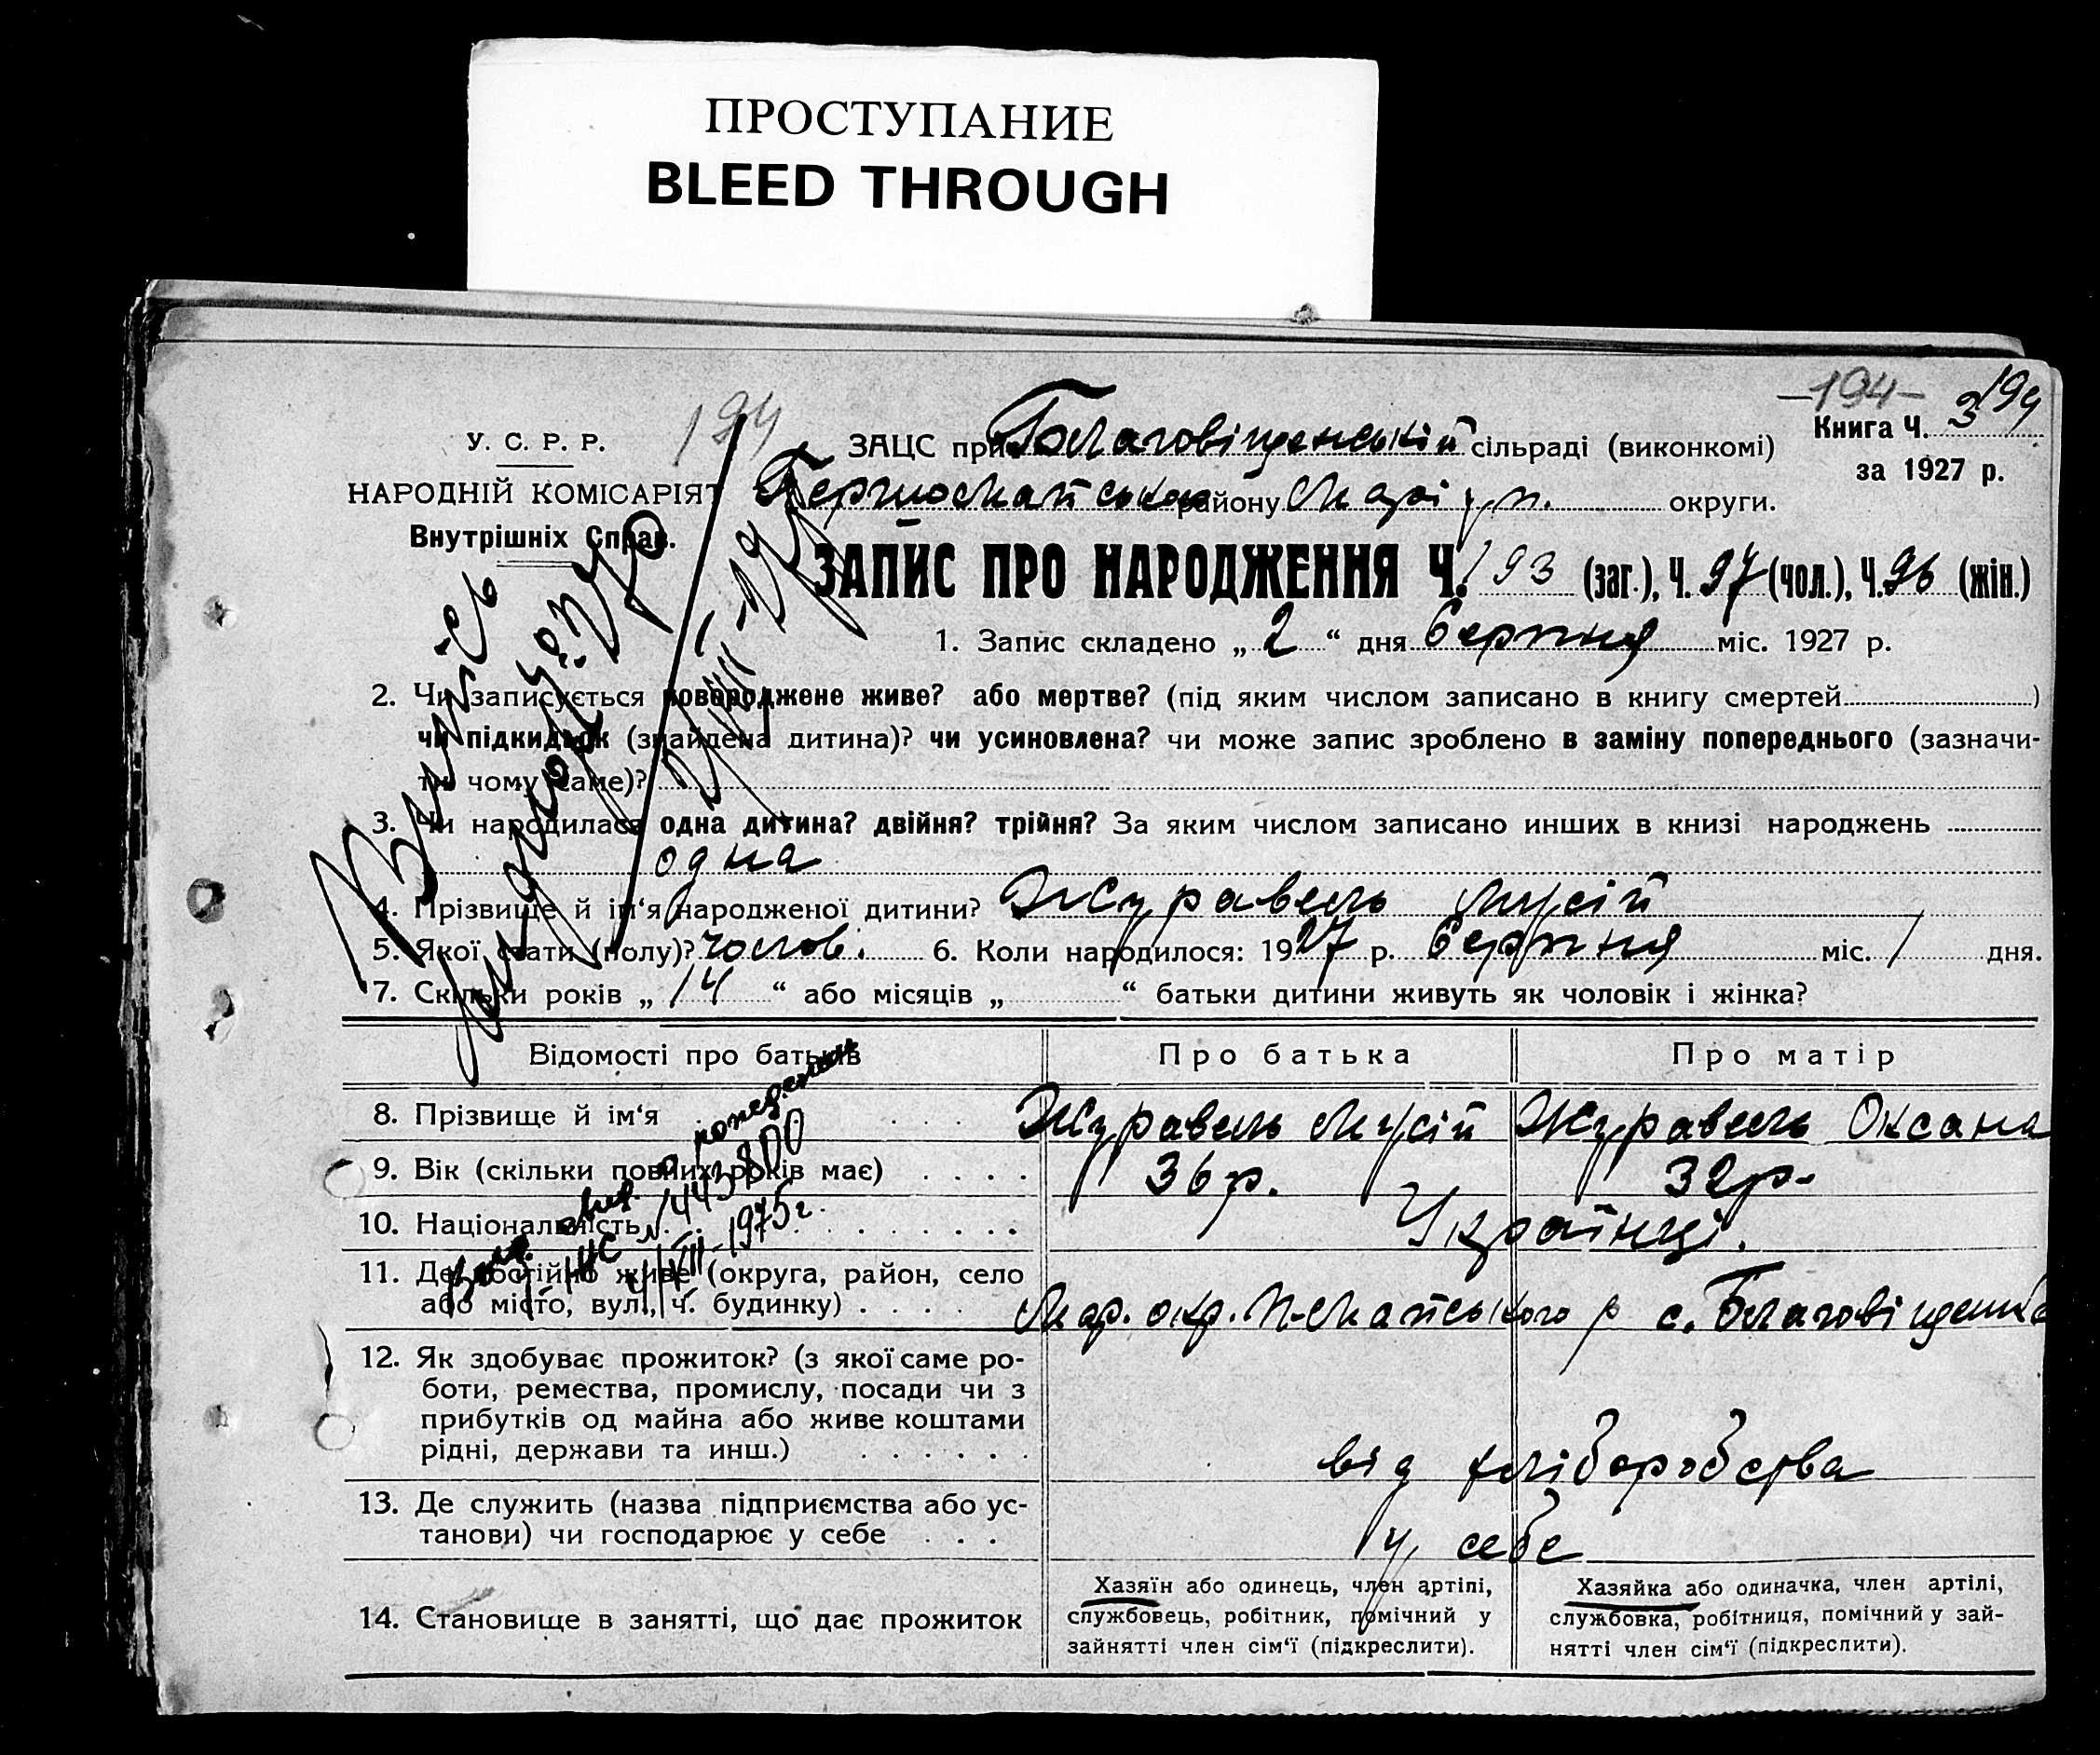 ПРОСТУПАНИЕ
BLEED THROUGH
194
-194-
У. С. Р. Р.
НАРОДНІЙ КОМІСАРІЯТ
Внутрішніх Справ.
ЗАЦС при Благовіщенській сільраді (виконкомі)
Першомайського району Маріуп. округи.
Книга Ч. 3 194
за 1927 р.
ЗАПИС ПРО НАРОДЖЕННЯ Ч. 193 (заг.), Ч. 97 (чол.), Ч. 96 (жін.)
1. Запис складено „ 2 “ дня Серпня міс. 1927 р.
2. Чи записується новороджене живе? або мертве? (під яким числом записано в книгу смертей )
чи підкидьок (знайдена дитина)? чи усиновлена? чи може запис зроблено в заміну попереднього (зазначи-
ти чому саме)?
3. Чи народилася одна дитина? двійня? трійня? За яким числом записано инших в книзі народжень
одна
4. Прізвище й ім‘я народженої дитини? Журавель Мусій
5. Якої стати (полу)? чолов. 6. Коли народилося: 1927 р. Серпня міс. 1 дня.
7. Скільки років „ 14 “ або місяців „ “ батьки дитини живуть як чоловік і жінка?
Витяг
Відомості про батьків
Про батька
Про матір
8. Прізвище й ім‘я Журавель Мусій Журавель Оксана
9. Вік (скільки повних років має) 36 р. 32 р.
10. Національність Українці.
11. Де постійно живе (округа, район, село
або місто, вул., ч. будинку) Мар. окр. П-Майського р с. Благовіщенка
12. Як здобуває прожиток? (з якої саме ро-
боти, ремества, промислу, посади чи з
прибутків од майна або живе коштами
рідні, держави та инш.) від хліборобства
13. Де служить (назва підприємства або ус-
танови) чи господарює у себе у себе
14. Становище в занятті, що дає прожиток
Хазяїн або одинець, член артілі,
службовець, робітник, помічний у
зайнятті член сім‘ї (підкреслити).
Хазяйка або одиначка, член артілі,
службовка, робітниця, помічний у зай-
нятті член сім‘ї (підкреслити).
о рождении
№ 443800
4/VIII-1975г.